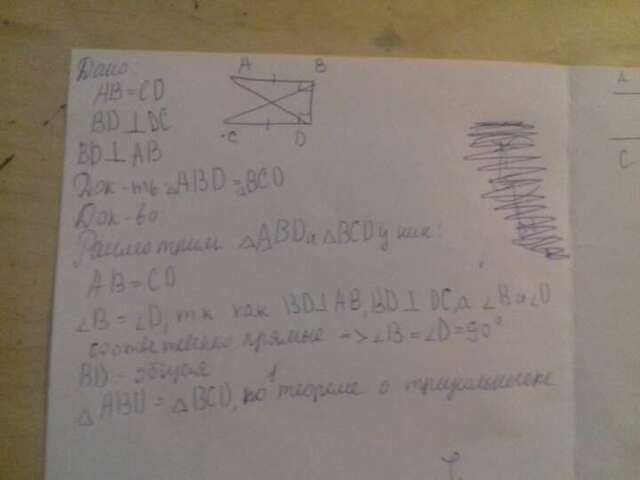 Дано:
A B
AB=CD
C D
BD⊥DC
BD⊥AB
Док-ть: △ABD=△BCD
Док-во
Рассмотрим △ABD и △BCD у них:
AB=CD
∠B=∠D, т.к как BD⊥AB, BD⊥DC, а ∠B и ∠D
соответственно прямые => ∠B=∠D=90°
BD - общая
△ABD = △BCD, по 1 теореме о
A
C